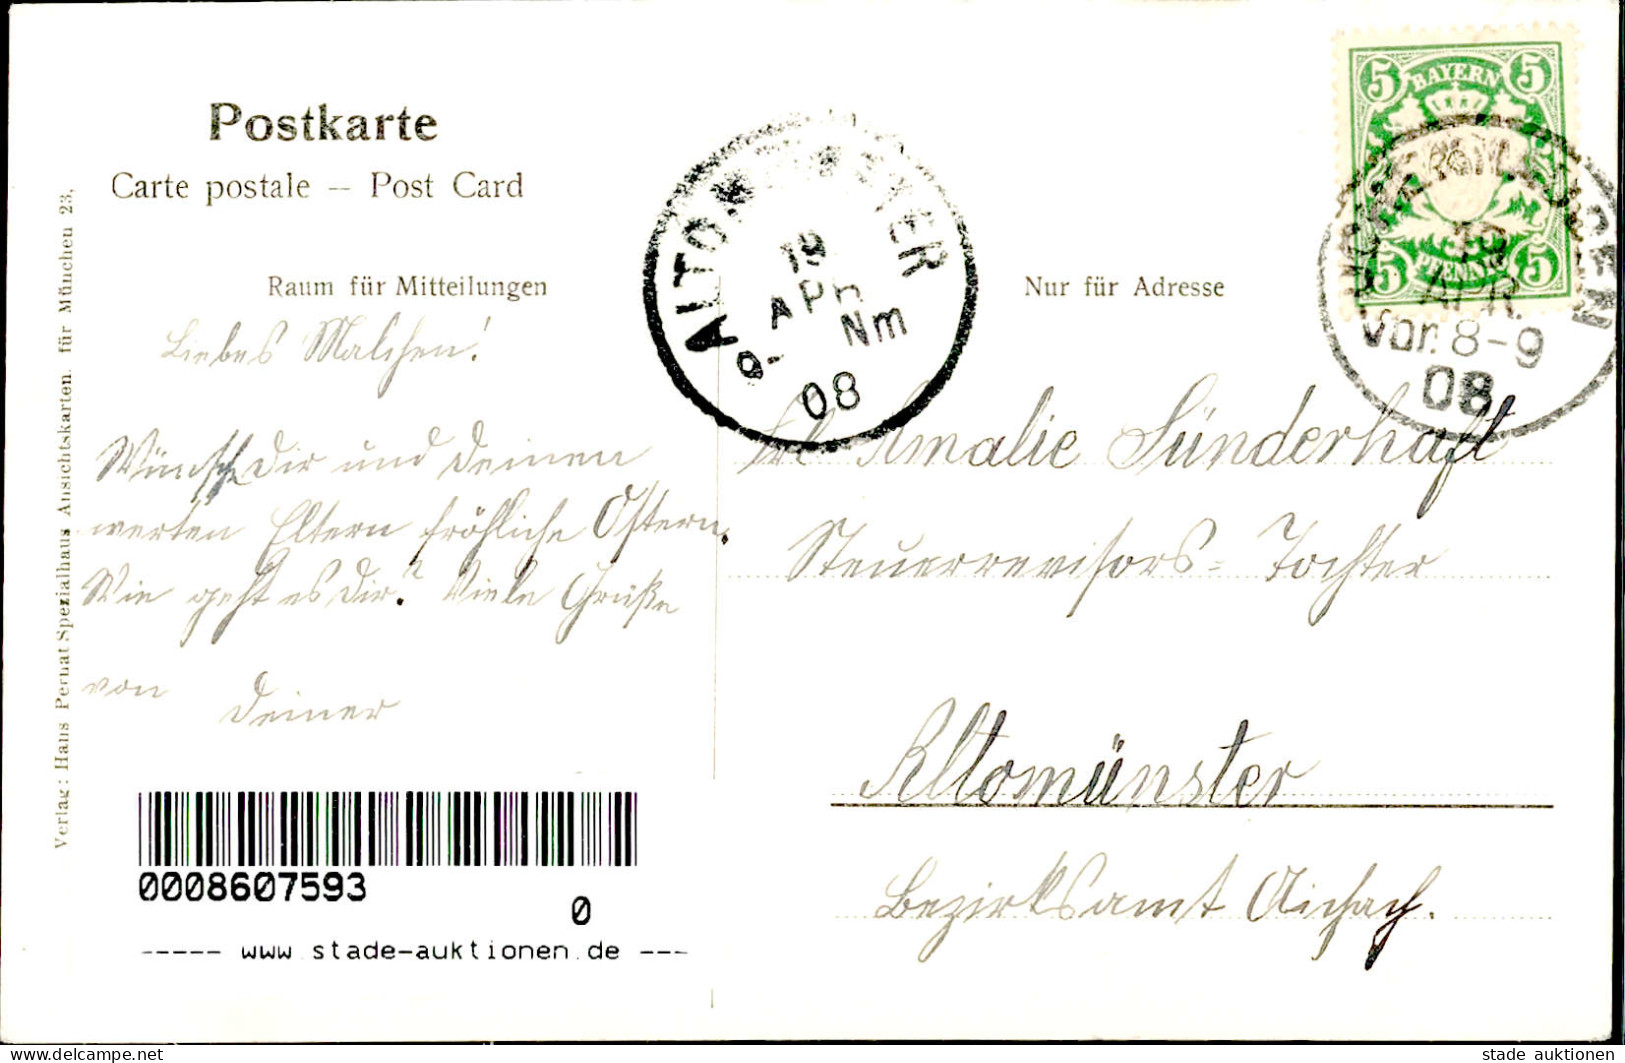 Postkarte
Carte postale — Post Card
Raum für Mitteilungen
Nur für Adresse
Verlag: Hans Pernat Spezialhaus Ansichtskarten für München 23.
BAYERN
5 5
5 PFENNIG 5
19
APR.
Vor. 8-9
08
ALTOMÜNSTER
19
APR
9- Nm
08
Liebes Malchen!
Wünsche Dir und Deinen
werten Eltern fröhliche Ostern.
Wie geht es Dir? Viele Grüße
von
Deiner
Frl Amalie Sünderhaft
Steuerrevisors-Tochter
Altomünster
Bezirksamt Aichach.
0008607593
0
----- www.stade-auktionen.de ---
www.delcampe.net
stade auktionen